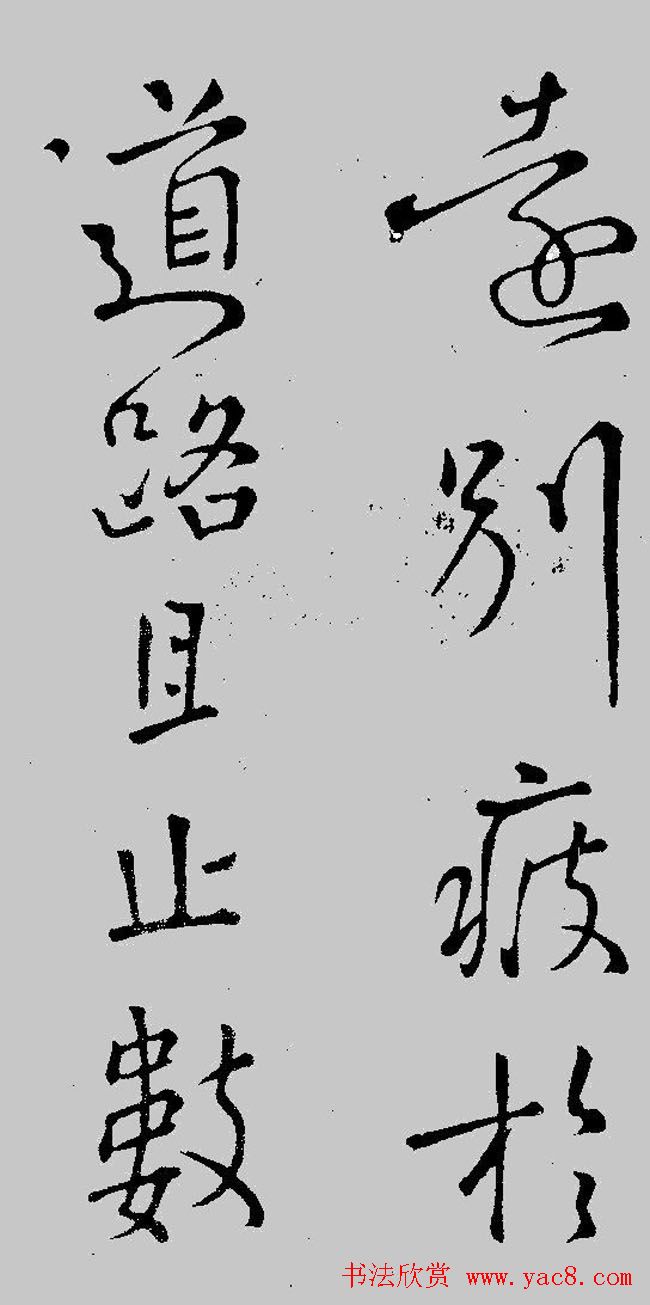 遠別疲於
道路且止數
书法欣赏 www.yac8.com